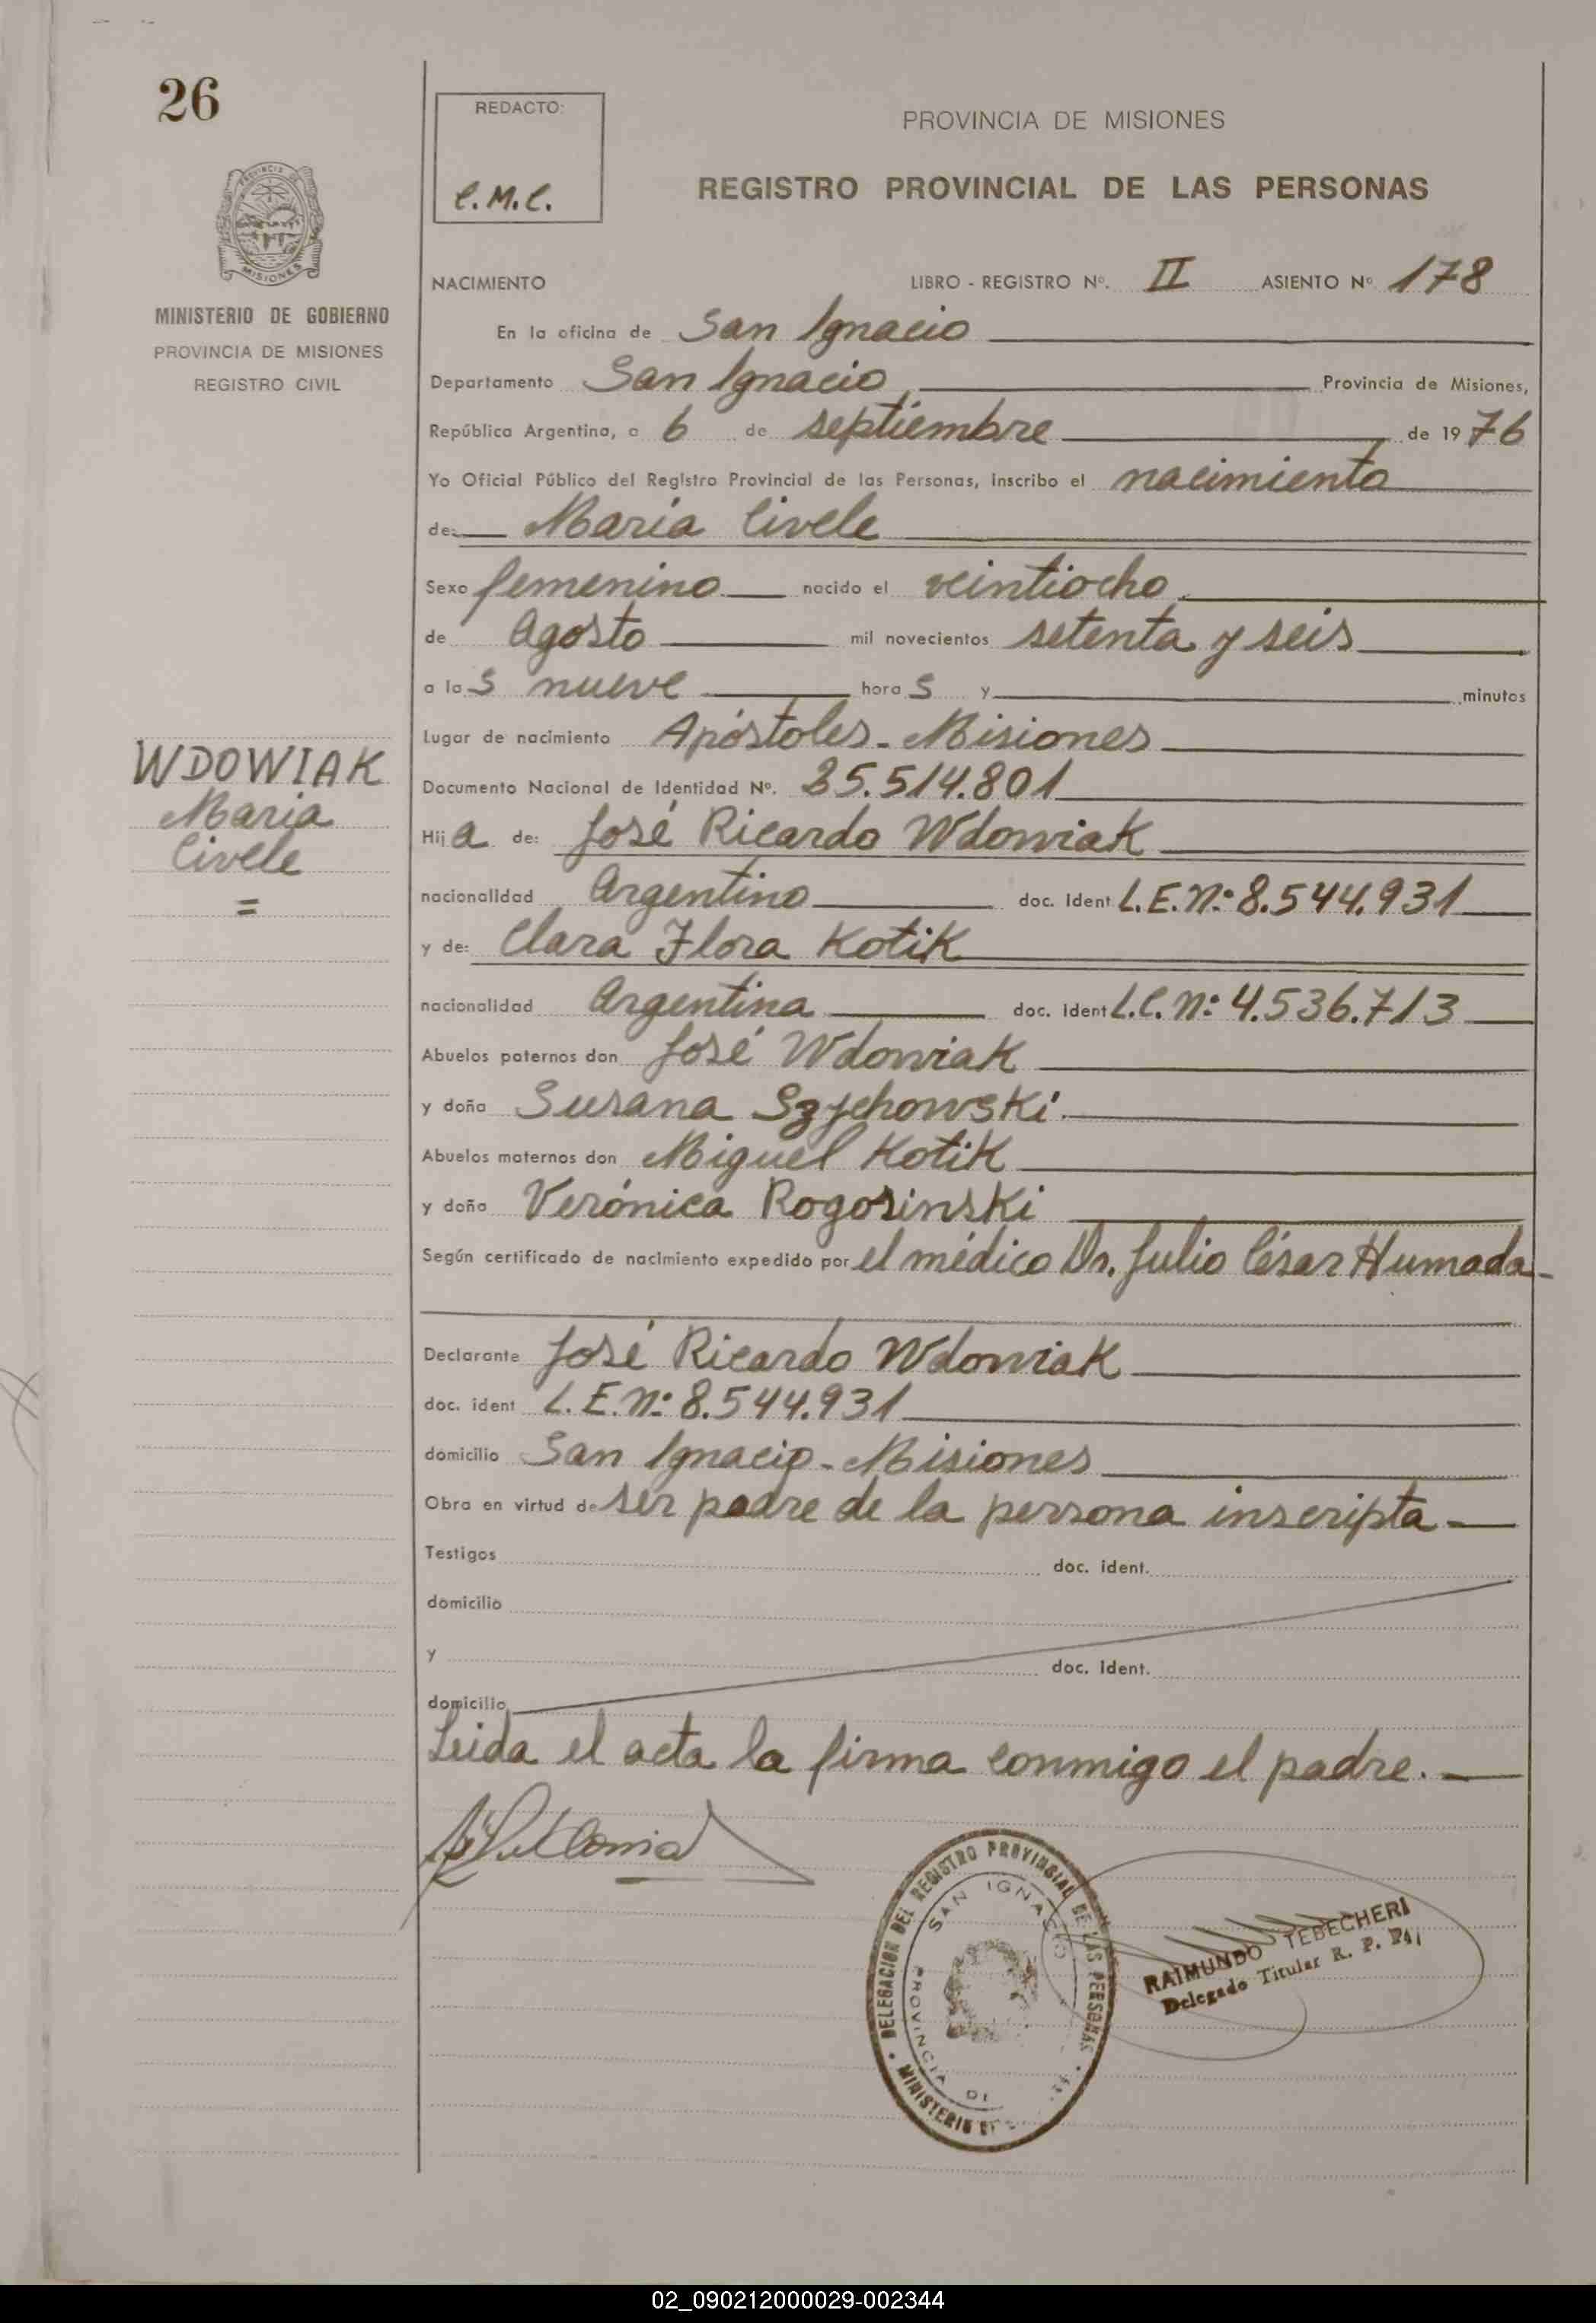 26
REDACTO:
C.M.C.
PROVINCIA DE MISIONES
REGISTRO PROVINCIAL DE LAS PERSONAS
MINISTERIO DE GOBIERNO
PROVINCIA DE MISIONES
REGISTRO CIVIL
NACIMIENTO LIBRO - REGISTRO Nº. II ASIENTO Nº 178
En la oficina de San Ignacio
Departamento San Ignacio Provincia de Misiones,
República Argentina, a 6 de septiembre de 1976
Yo Oficial Público del Registro Provincial de las Personas, inscribo el nacimiento
de: María Civele
Sexo femenino nacido el veintiocho
de Agosto mil novecientos setenta y seis
a las nueve horas y minutos
Lugar de nacimiento Apóstoles - Misiones
WDOWIAK
Maria
Civele
=
Documento Nacional de Identidad Nº. 25.514.801
Hija de: José Ricardo Wdowiak
nacionalidad Argentino doc. Ident L.E.Nº 8.544.931
y de: Clara Flora Kotik
nacionalidad Argentina doc. Ident L.C. Nº 4.536.713
Abuelos paternos don José Wdowiak
y doña Susana Szychowski
Abuelos maternos don Miguel Kotik
y doña Verónica Rogosinski
Según certificado de nacimiento expedido por el médico Dr. Julio César Humada
Declarante José Ricardo Wdowiak
doc. ident L.E.Nº 8.544.931
domicilio San Ignacio - Misiones
Obra en virtud de ser padre de la persona inscripta.
Testigos doc. ident.
domicilio
y doc. ident.
domicilio
Leida el acta la firma conmigo el padre.
DELEGACION DEL REGISTRO PROVINCIAL DE LAS PERSONAS
SAN IGNACIO
PROVINCIA DE
MINISTERIO DE
RAIMUNDO TEBECHERI
Delegado Titular R. P.
02_090212000029-002344